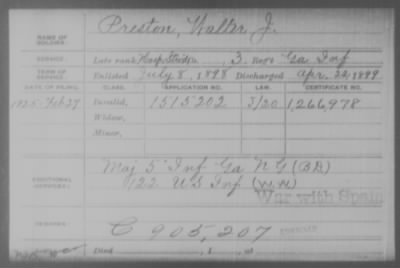 NAME OF SOLDIER: Preston, Walter J.
SERVICE: Late rank Hosp Stwd Co. , 3 Reg't Ga Inf
TERM OF SERVICE: Enlisted July 8, 1898 Discharged Apr. 22, 1899
DATE OF FILING. CLASS. APPLICATION NO. LAW. CERTIFICATE NO.
1925 Feb 27 Invalid, 1515202 J/20 1,266,978
Widow,
Minor,
ADDITIONAL SERVICES: Maj 5" Inf Ga NG (BD)
122 US Inf (W.W.)
War with Spain
REMARKS: C 905,207
Died , 1 , at